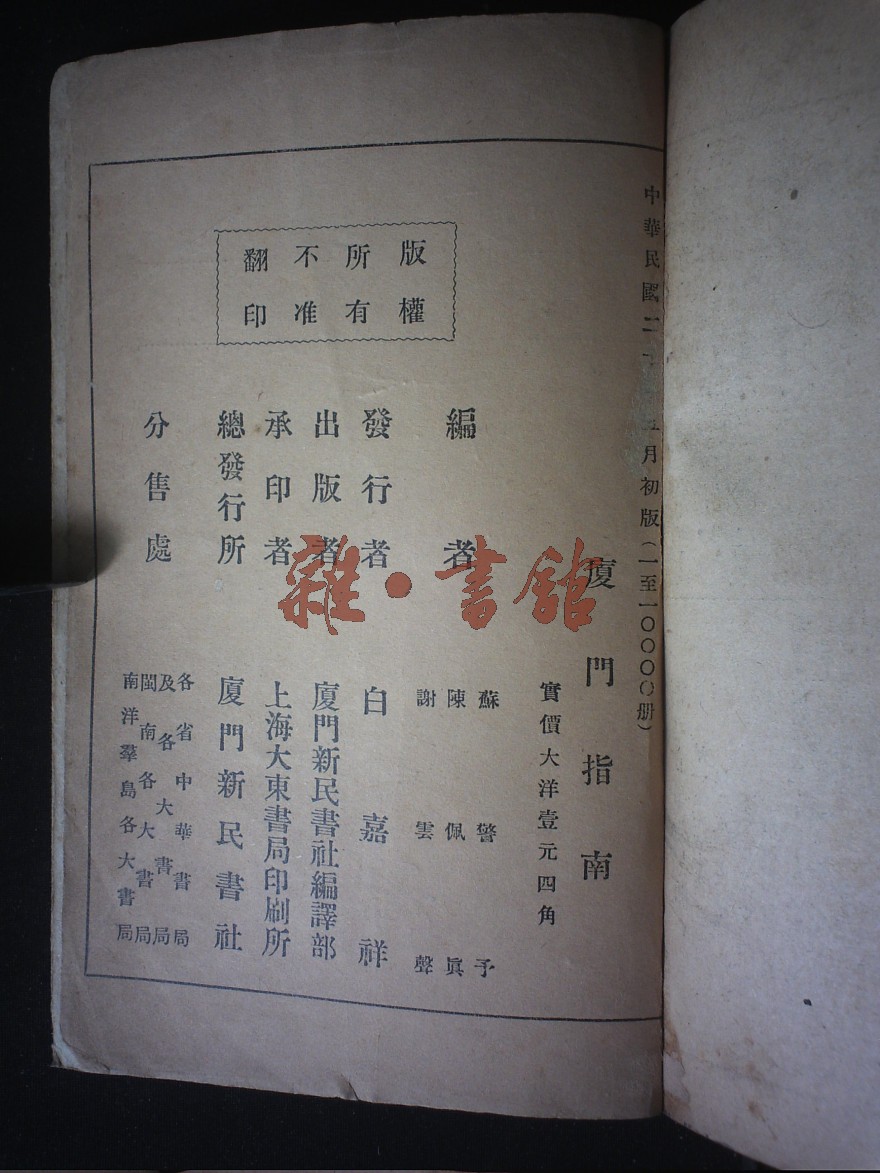 中華民國二 五月初版（一至一〇〇〇〇册）
廈門指南
實價大洋壹元四角
編者
蘇警予
陳佩眞
謝雲聲
發行者 白嘉祥
出版者 廈門新民書社編譯部
承印者 上海大東書局印刷所
總發行所 廈門新民書社
分售處
各省中華書局
及各大書局
閩南各大書局
南洋羣島各大書局
版權
所有
不准
翻印
雜·書館